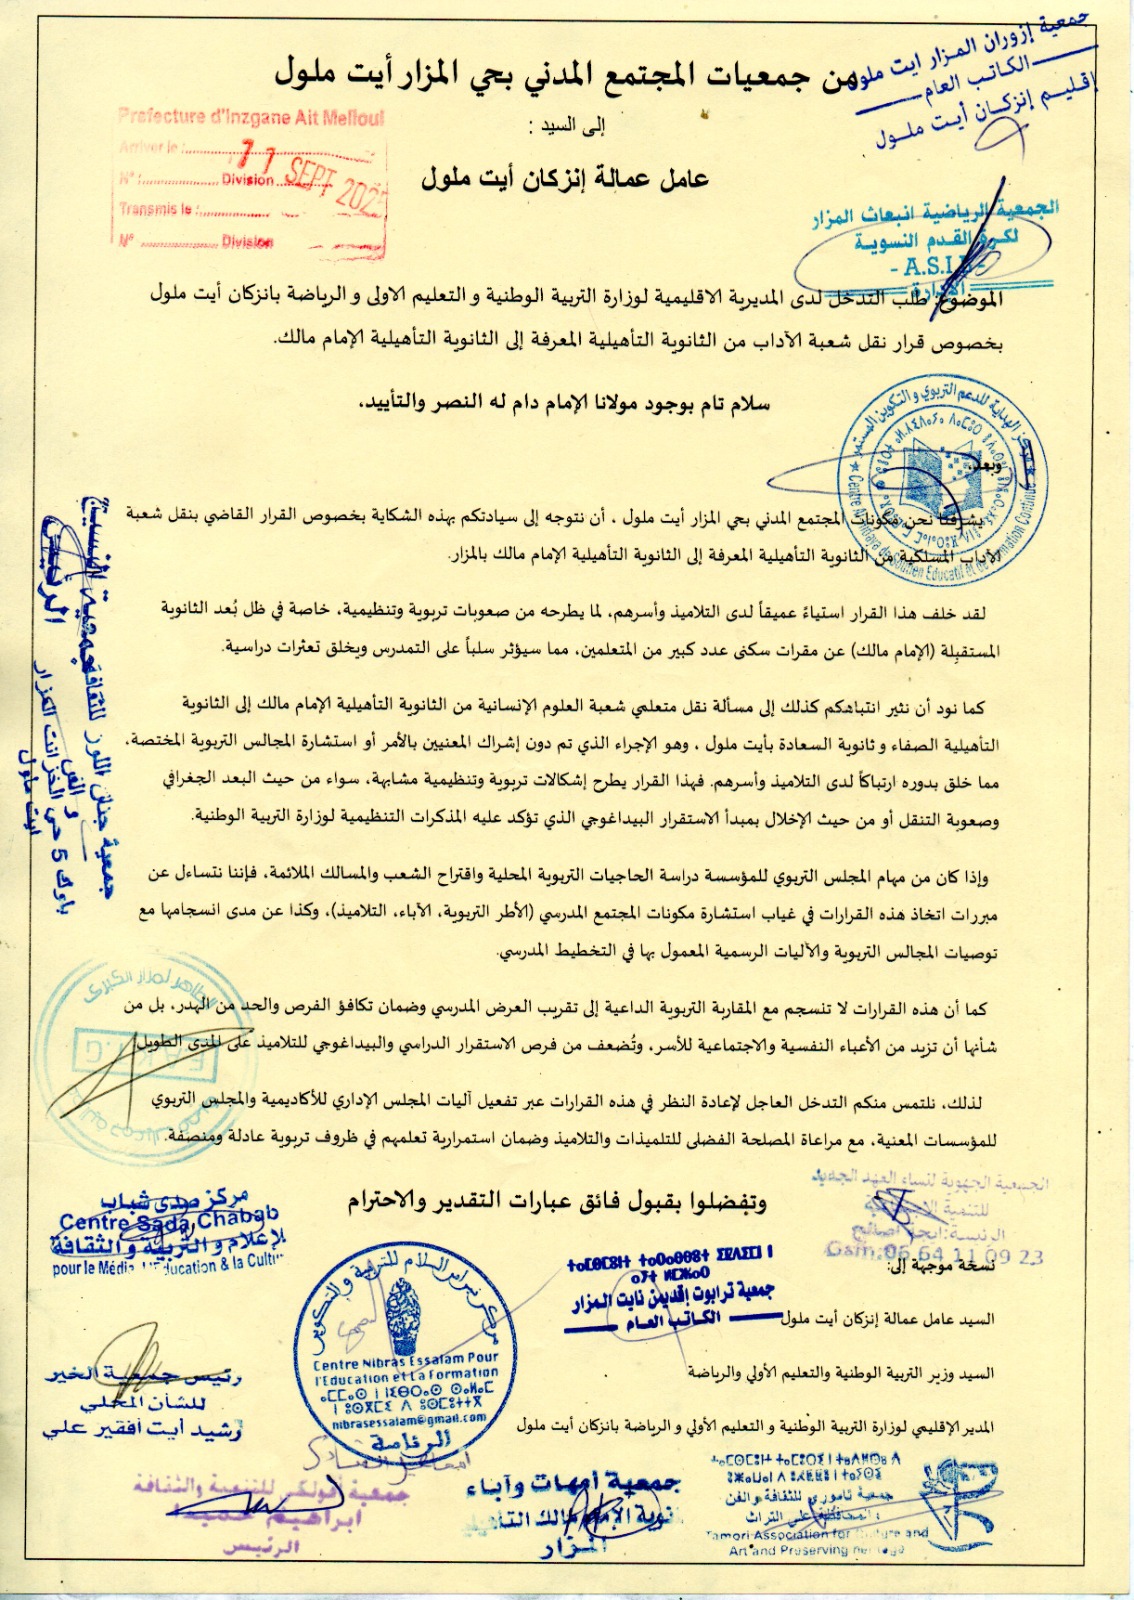 جمعية إزوران المزار ايت ملول
الكاتب العام
إقليم إنزكان أيت ملول
من جمعيات المجتمع المدني بحي المزار أيت ملول
Prefecture d'Inzgane Ait Melloul
Arriver le :
11 SEPT 202
N° : Division
Transmis le :
N° Division
إلى السيد :
عامل عمالة إنزكان أيت ملول
الجمعية الرياضية انبعاث المزار
لكرة القدم النسوية
الموضوع: طلب التدخل لدى المديرية الاقليمية لوزارة التربية الوطنية و التعليم الاولى و الرياضة بانزكان أيت ملول
بخصوص قرار نقل شعبة الآداب من الثانوية التأهيلية المعرفة إلى الثانوية التأهيلية الإمام مالك.
سلام تام بوجود مولانا الإمام دام له النصر والتأييد.
مركز الهداية للدعم التربوي والتكوين المستمر
وبعد،
يشرفنا نحن مكونات المجتمع المدني بحي المزار أيت ملول ، أن نتوجه إلى سيادتكم بهذه الشكاية بخصوص القرار القاضي بنقل شعبة
الآداب المسلكية من الثانوية التأهيلية المعرفة إلى الثانوية التأهيلية الإمام مالك بالمزار.
لقد خلف هذا القرار استياءً عميقاً لدى التلاميذ وأسرهم، لما يطرحه من صعوبات تربوية وتنظيمية، خاصة في ظل بُعد الثانوية
المستقبِلة (الإمام مالك) عن مقرات سكنى عدد كبير من المتعلمين، مما سيؤثر سلباً على التمدرس ويخلق تعثرات دراسية.
كما نود أن نثير انتباهكم كذلك إلى مسألة نقل متعلمي شعبة العلوم الإنسانية من الثانوية التأهيلية الإمام مالك إلى الثانوية
التأهيلية الصفاء و ثانوية السعادة بأيت ملول ، وهو الإجراء الذي تم دون إشراك المعنيين بالأمر أو استشارة المجالس التربوية المختصة،
مما خلق بدوره ارتباكاً لدى التلاميذ وأسرهم. فهذا القرار يطرح إشكالات تربوية وتنظيمية مشابهة، سواء من حيث البعد الجغرافي
وصعوبة التنقل أو من حيث الإخلال بمبدأ الاستقرار البيداغوجي الذي تؤكد عليه المذكرات التنظيمية لوزارة التربية الوطنية.
وإذا كان من مهام المجلس التربوي للمؤسسة دراسة الحاجيات التربوية المحلية واقتراح الشعب والمسالك الملائمة، فإننا نتساءل عن
مبررات اتخاذ هذه القرارات في غياب استشارة مكونات المجتمع المدرسي (الأطر التربوية، الآباء، التلاميذ)، وكذا عن مدى انسجامها مع
توصيات المجالس التربوية والآليات الرسمية المعمول بها في التخطيط المدرسي.
كما أن هذه القرارات لا تنسجم مع المقاربة التربوية الداعية إلى تقريب العرض المدرسي وضمان تكافؤ الفرص والحد من الهدر، بل من
شأنها أن تزيد من الأعباء النفسية والاجتماعية للأسر، وتُضعف من فرص الاستقرار الدراسي والبيداغوجي للتلاميذ على المدى الطويل.
لذلك، نلتمس منكم التدخل العاجل لإعادة النظر في هذه القرارات عبر تفعيل آليات المجلس الإداري للأكاديمية والمجلس التربوي
للمؤسسات المعنية، مع مراعاة المصلحة الفضلى للتلميذات والتلاميذ وضمان استمرارية تعلمهم في ظروف تربوية عادلة ومنصفة.
وتفضلوا بقبول فائق عبارات التقدير والاحترام
نسخة موجهة إلى:
السيد عامل عمالة إنزكان أيت ملول
السيد وزير التربية الوطنية والتعليم الأولي والرياضة
المدير الإقليمي لوزارة التربية الوطنية و التعليم الأولي و الرياضة بانزكان أيت ملول
جمعية جنان اللوز للثقافة
و الفن
الرئيس
بلوك 5 حي الخزانت المزار
ايت ملول
الجمعية الجهوية لنساء العهد الجديد
Gsm:06 64 11 09 23
مركز صدى شباب
Centre Sada Chabab
للإعلام و التربية و الثقافة
pour le Média l'Education & la Cultu
مركز نبراس السلام للتربية والتكوين
Centre Nibras Essalam Pour
l'Education et La Formation
nibrasessalam@gmail.com
الرئاسة
جمعية ترابوت إقديمن نايت المزار
الكاتب العام
رئيس جمعية الخير
للشأن المحلي
رشيد أيت أفقير علي
جمعية أفولكي للتنمية والثقافة
ابراهيم
الرئيس
جمعية أمهات وآباء
ثانوية الإمام مالك التأهيلية
المزار
جمعية تاموري للثقافة والفن
والمحافظة على التراث
Tamori Association for Culture and
Art and Preserving heritage